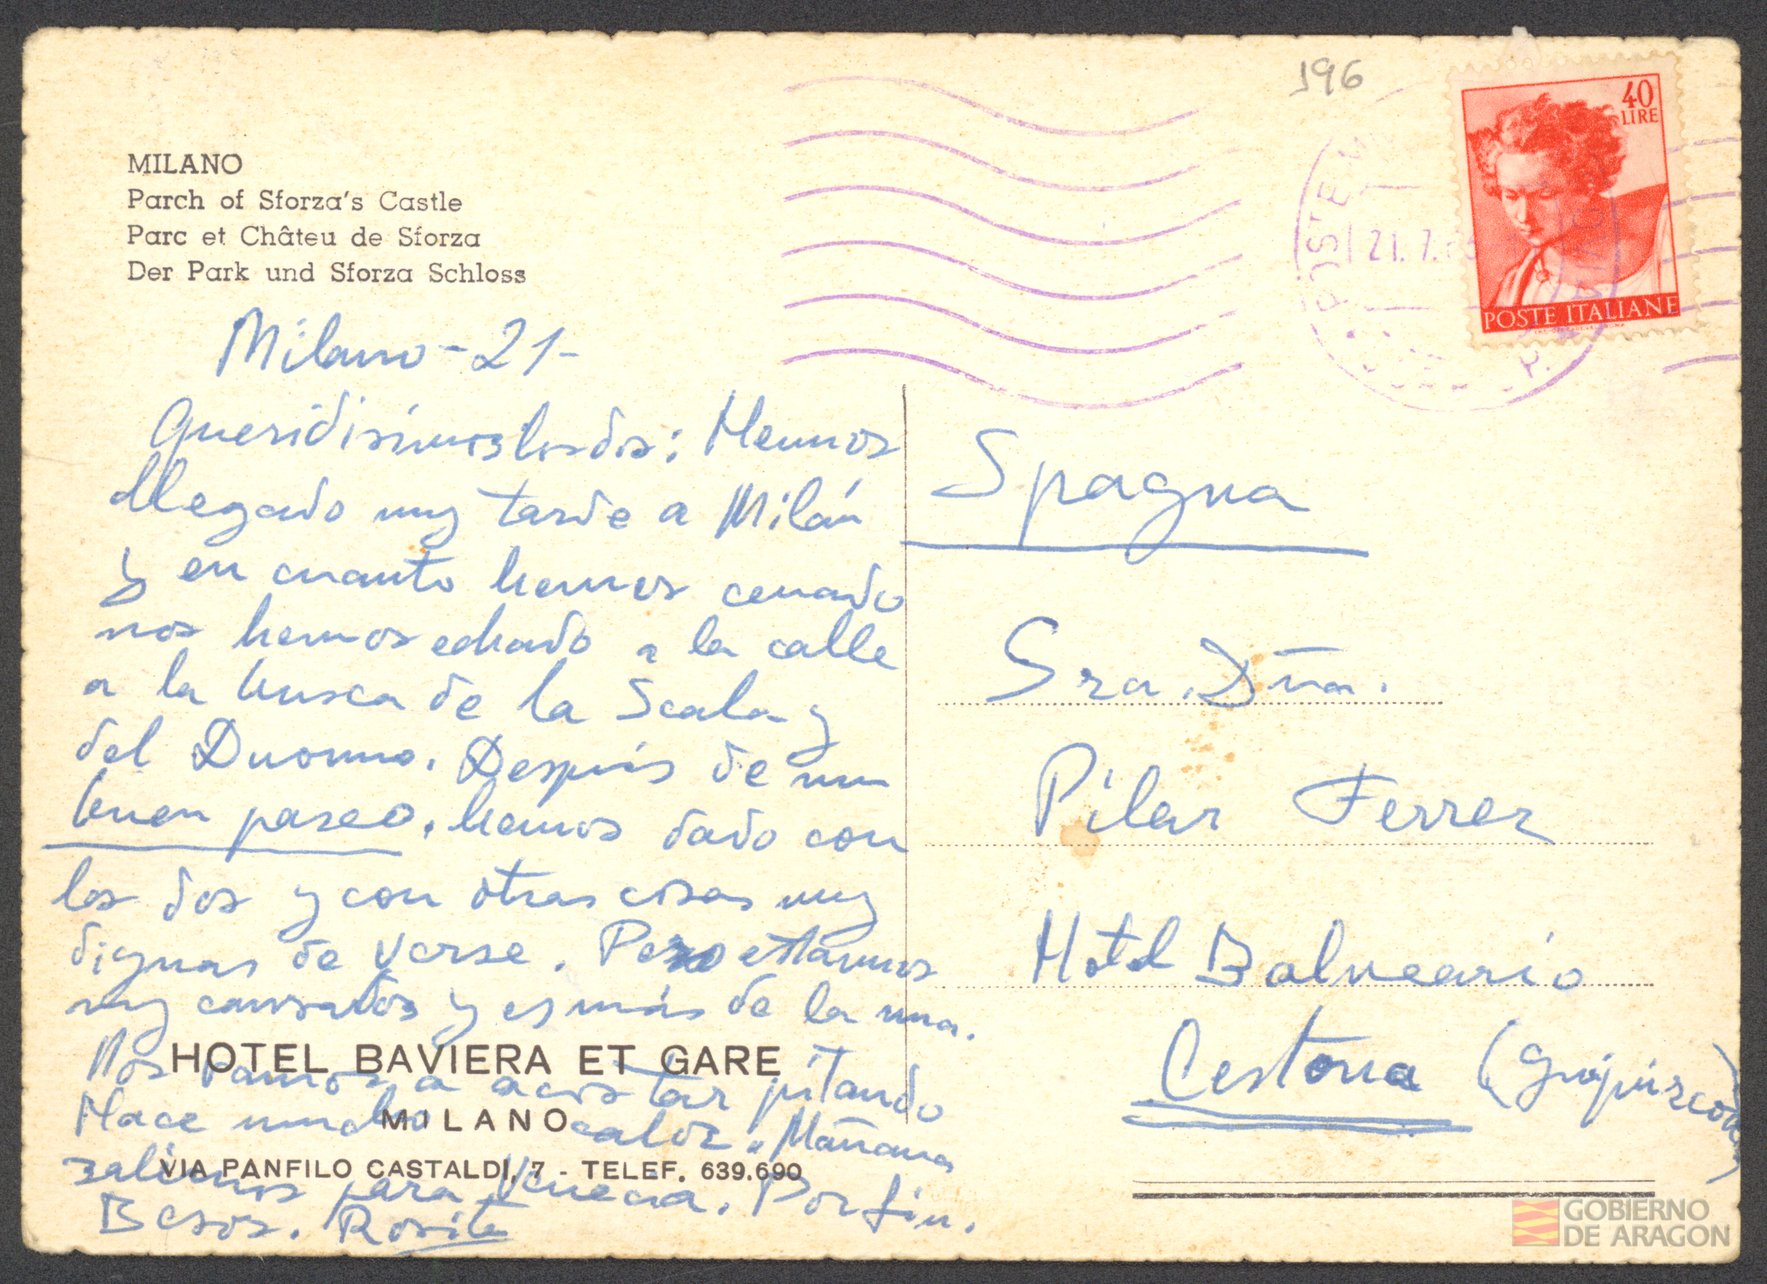 196
40
LIRE
POSTE ITALIANE
21.7.
MILANO
Parch of Sforza's Castle
Parc et Châteu de Sforza
Der Park und Sforza Schloss
Milano - 21 -
Queridísimos los dos: Hemos
llegado muy tarde a Milán
y en cuanto hemos cenado
nos hemos echado a la calle
a la busca de la Scala y
del Duomo. Después de un
buen paseo, hemos dado con
los dos y con otras cosas muy
dignas de verse. Pero estamos
muy cansados y es más de la una.
Nos vamos a acostar pitando
Hace mucho calor. Mañana
salimos para Venecia. Por fin.
Besos. Rosita
HOTEL BAVIERA ET GARE
MILANO
VIA PANFILO CASTALDI, 7 - TELEF. 639.690
Spagna
Sra. Dña.
Pilar Ferrer
Hotel Balneario
Cestona (Guipúzcoa)
GOBIERNO
DE ARAGON